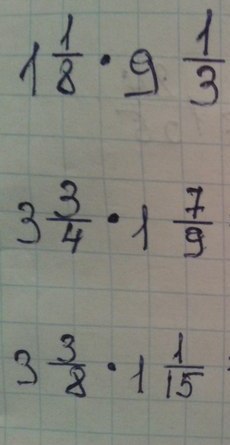 1 1/8 · 9 1/3
3 3/4 · 1 7/9
3 3/8 · 1 1/15